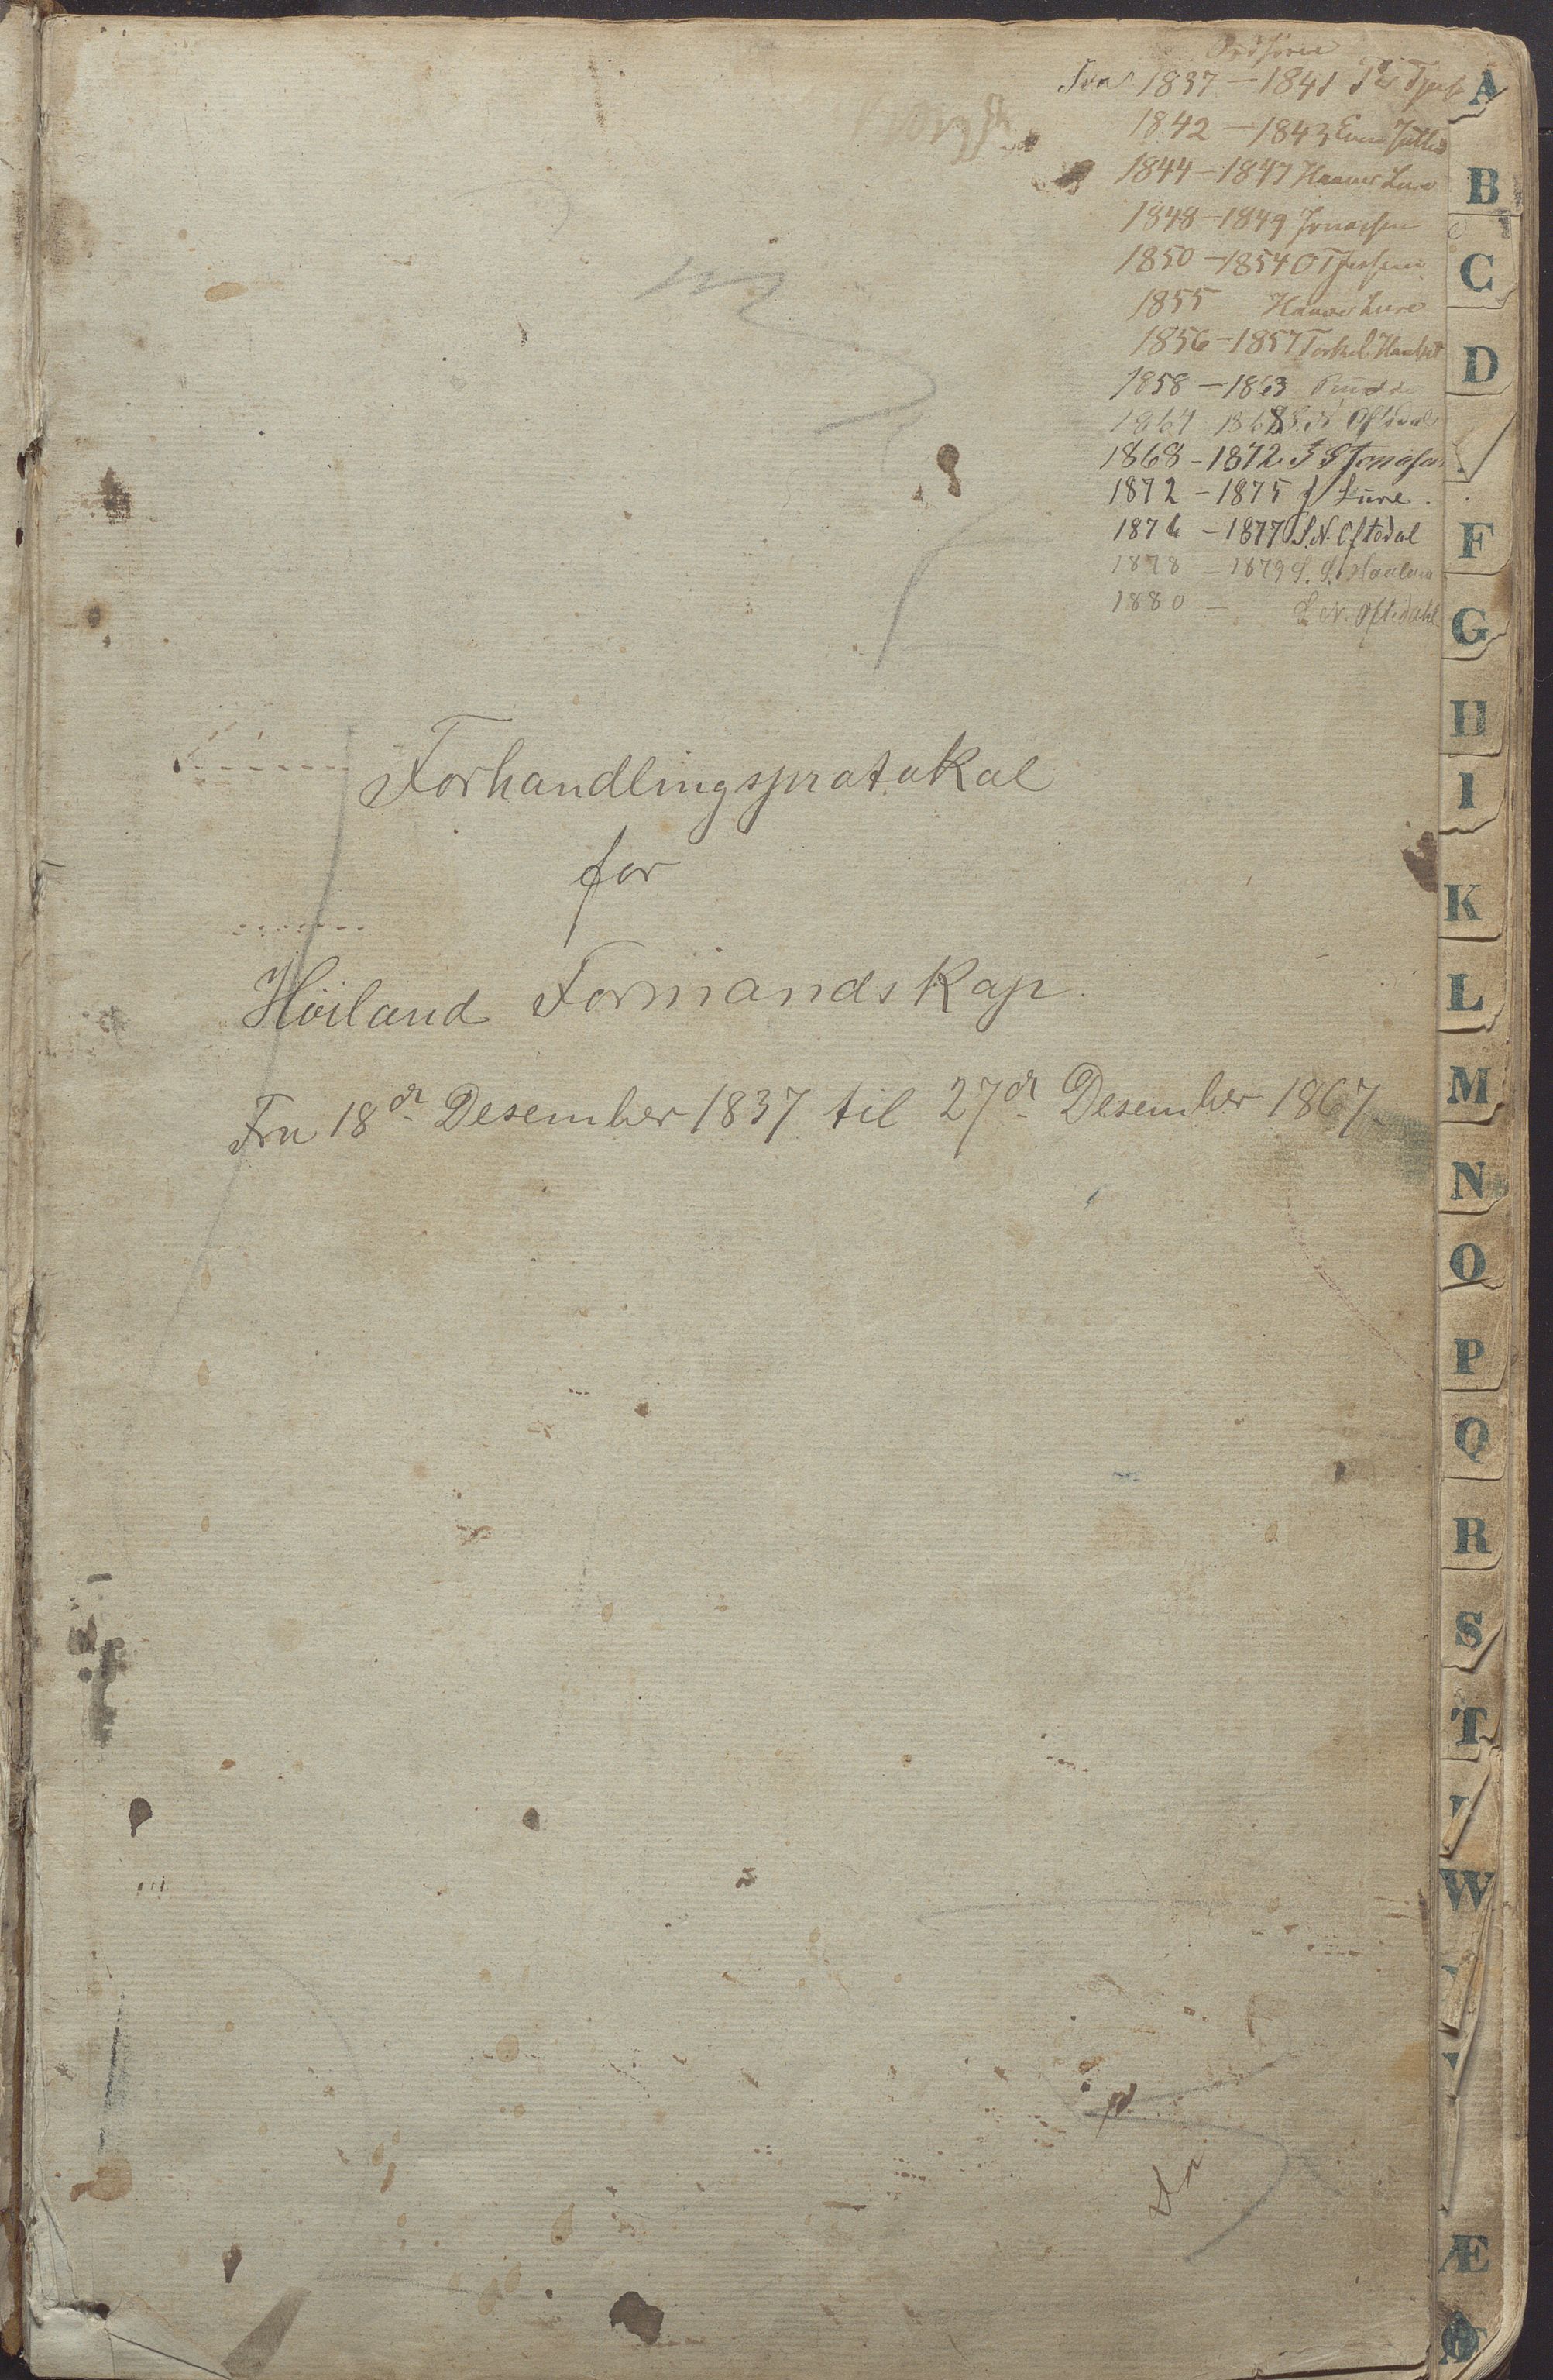 Ordfører
Fra 1837 – 1841
1842 – 1843
1844 – 1847 Haaver Lure
1848 – 1849 Jonassen
1850 – 1854 O Tjessem
1855 Haaver Lure
1856 – 1857 Torkel
1858 – 1863
1864 S. N. Oftedal
1868 – 1872 Jonassen
1872 – 1875 Lure.
1876 – 1877 S. N. Oftedal
1878 – 1879
1880 – S. N. Oftedahl
Forhandlingsprotokol
for
Høiland Formandskap.
Fra 18de Desember 1837 til 27de Desember 1867
A
B
C
D
F
G
H
I
K
L
M
N
O
P
Q
R
S
T
W
Æ